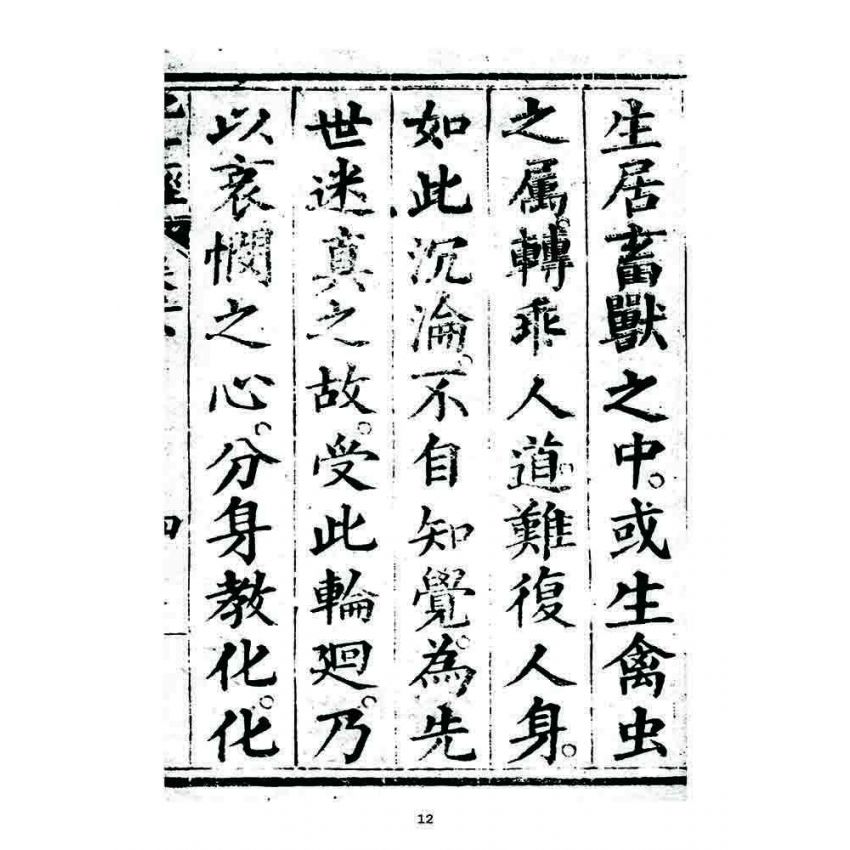 生居畜獸之中。或生禽虫
之属。轉乖人道。難復人身。
如此沉淪。不自知覺。為先
世迷真之故。受此輪廻。乃
以哀憫之心。分身教化。化
四
12